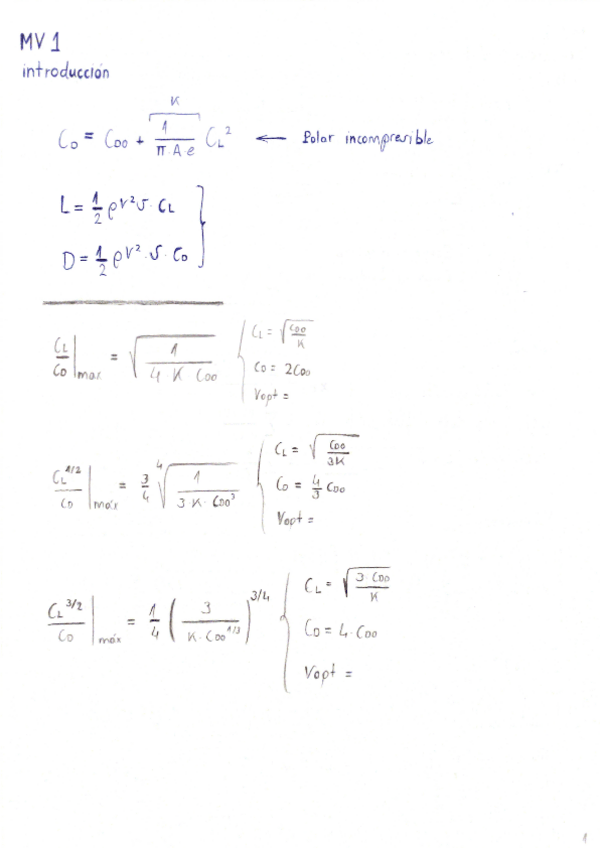 MV 1
introducción
K
C_D = C_D0 + 1/(π·A·e) C_L² ← Polar incompresible
L = 1/2 ρV²S·C_L
D = 1/2 ρV²·S·C_D
C_L/C_D |max = √(1/(4 K C_D0))
C_L = √(C_D0/K)
C_D = 2C_D0
Vopt =
C_L^1/2/C_D |máx = 3/4 ∜(1/(3K·C_D0³))
C_L = √(C_D0/3K)
C_D = 4/3 C_D0
Vopt =
C_L^3/2/C_D |máx = 1/4 (3/(K·C_D0^1/3))^3/4
C_L = √(3·C_D0/K)
C_D = 4·C_D0
Vopt =
1